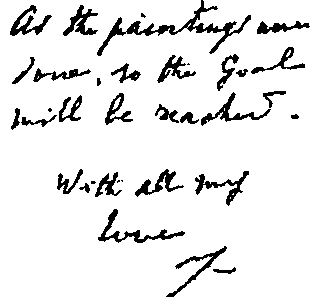 As the paintings were
done, so the Goal
will be reached.
With all my
love